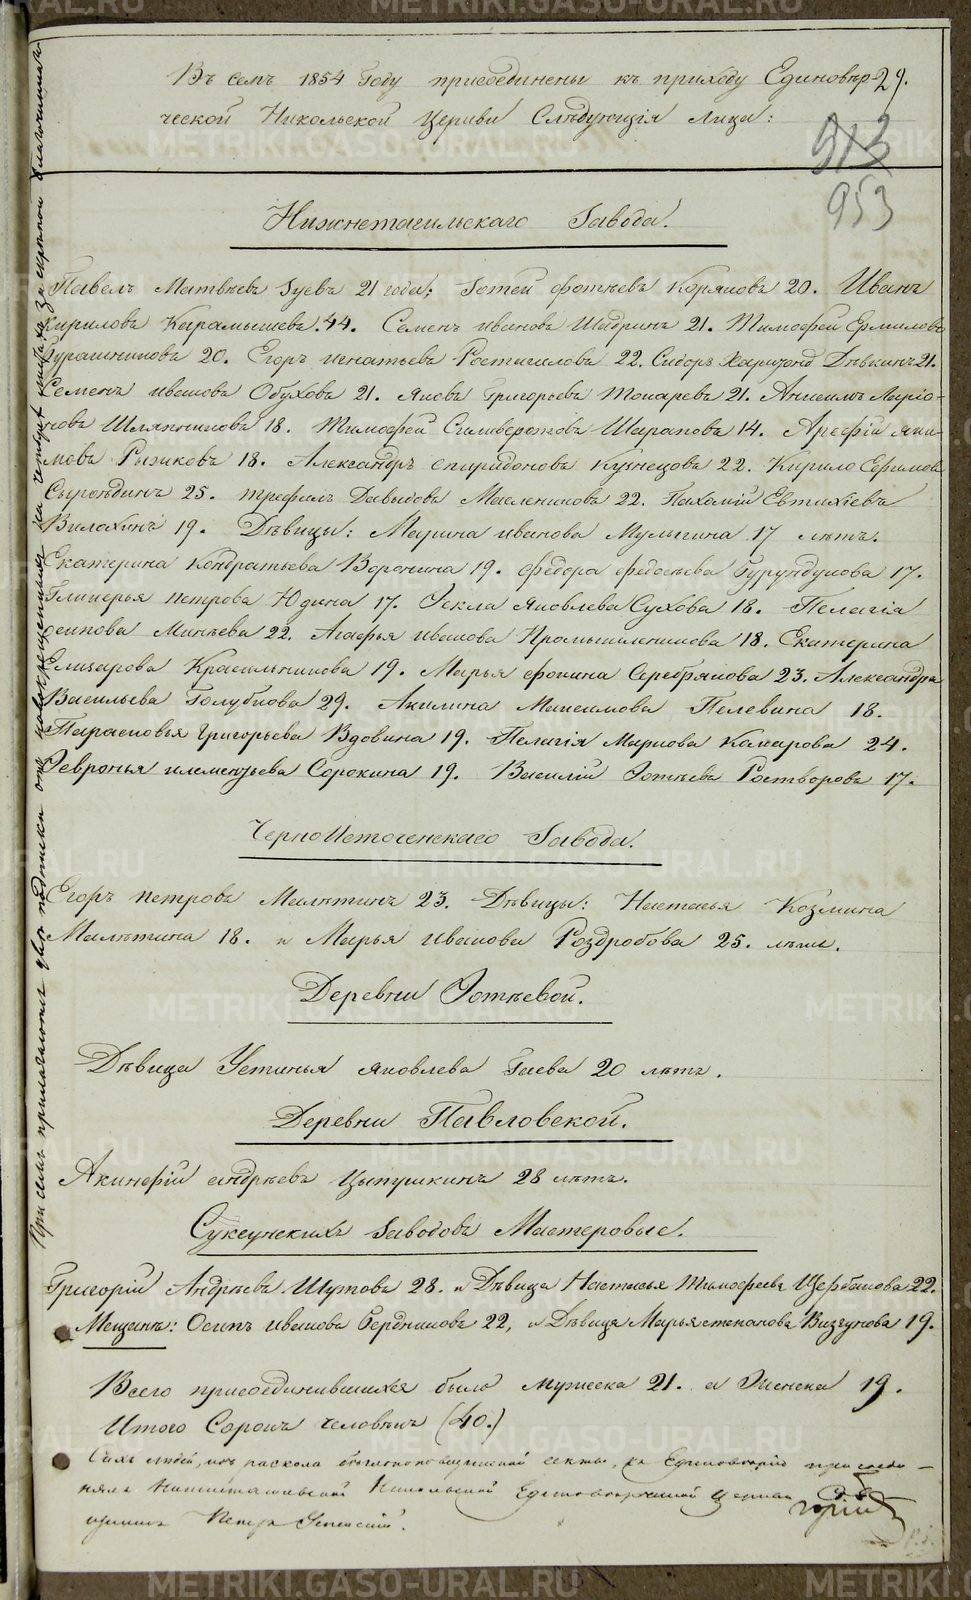 Въ семъ 1854 Году присоединены къ приходу Единовѣр-
29.
ческой Никольской Церкви Слѣдующія Лица:
913
953
Нижнетагильскаго Завода.
Павелъ Матвѣевъ Зуевъ 21 года; Фотей Фотѣевъ Коряковъ 20. Иванъ
Кириловъ Карамышевъ 44. Семенъ Ивановъ Шадринъ 21. Тимофей Ермиловъ
20. Егоръ Игнатьевъ 22. Сидоръ Дѣвкинъ 21.
Семенъ Ивановъ Обуховъ 21. Яковъ Григорьевъ Токаревъ 21. Анисимъ Ларіо-
новъ Шляпниковъ 18. Тимофей Селиверстовъ Шараповъ 14. Арефій Яки-
мовъ Рыжиковъ 18. Александръ Спиридоновъ Кузнецовъ 22. Кирило Ефимовъ
Сыроѣдинъ 25. Трефилъ Давыдовъ Маслениковъ 22. Пахомій Евтихіевъ
19. Дѣвицы: Марина Иванова Мулыгина 17 лѣтъ.
Екатерина Кондратьева Воронина 19. Федора Федосѣева Бурундукова 17.
Гликерья Петрова Юдина 17. Фекла Яковлева Сухова 18. Пелагіа
Осипова Минѣева 22. Агафья Иванова Промышленникова 18. Екатерина
Елизарова Красильникова 19. Марья Фокина Серебрякова 23. Александра
Васильева Голубкова 29. Акилина Максимова Пелевина 18.
Парасковья Григорьева Вдовина 19. Пелагія Маркова Комарова 24.
Февронья Клементьева Сорокина 19. Василій Фотѣевъ Ростворовъ 17.
ЧерноИсточенскаго Завода.
Егоръ Петровъ Малѣтинъ 23. Дѣвицы: Настасья Козмина
Малѣтина 18. и Марья Иванова Роздробова 25. лѣтъ.
Деревни Фотѣевой.
Дѣвица Устинья Яковлева Гаева 20 лѣтъ.
Деревни Павловской.
Акинфій Андрѣевъ Цыпушкинъ 28 лѣтъ.
Суксунскихъ Заводовъ Мастеровые.
Григорій Андрѣевъ Шутовъ 28. и Дѣвица Настасья Тимофеева Щербакова 22.
Мещанъ: Осипъ Ивановъ Бердниковъ 22, и Дѣвица Марья Степанова Визгунова 19.
Всего присоединившихся было мужеска 21. а Женска 19.
Итого Сорокъ человѣкъ (40.)
Сихъ людей, изъ раскола секты, къ Единоверію присоеди-
нялъ Нижнетагильской Никольской Единоверческой церкви
Петръ Успенскій.
При семъ прилагаются